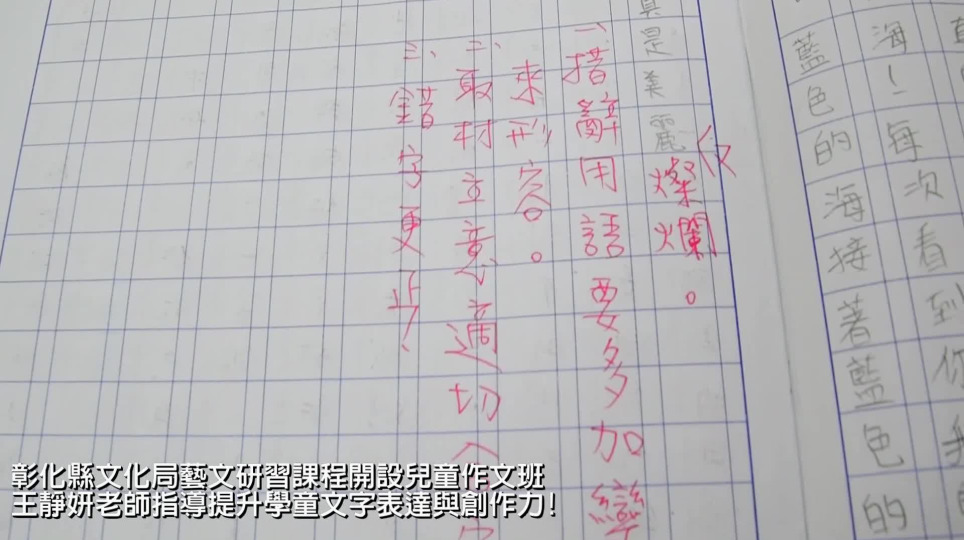 到你
海！每次看到你
藍色的海接著藍色的
真是美麗
又燦爛。
一、措辭用語要多加變
來形容。。
二、取材立意適切
三、錯字更正！
彰化縣文化局藝文研習課程開設兒童作文班
王靜妍老師指導提升學童文字表達與創作力！